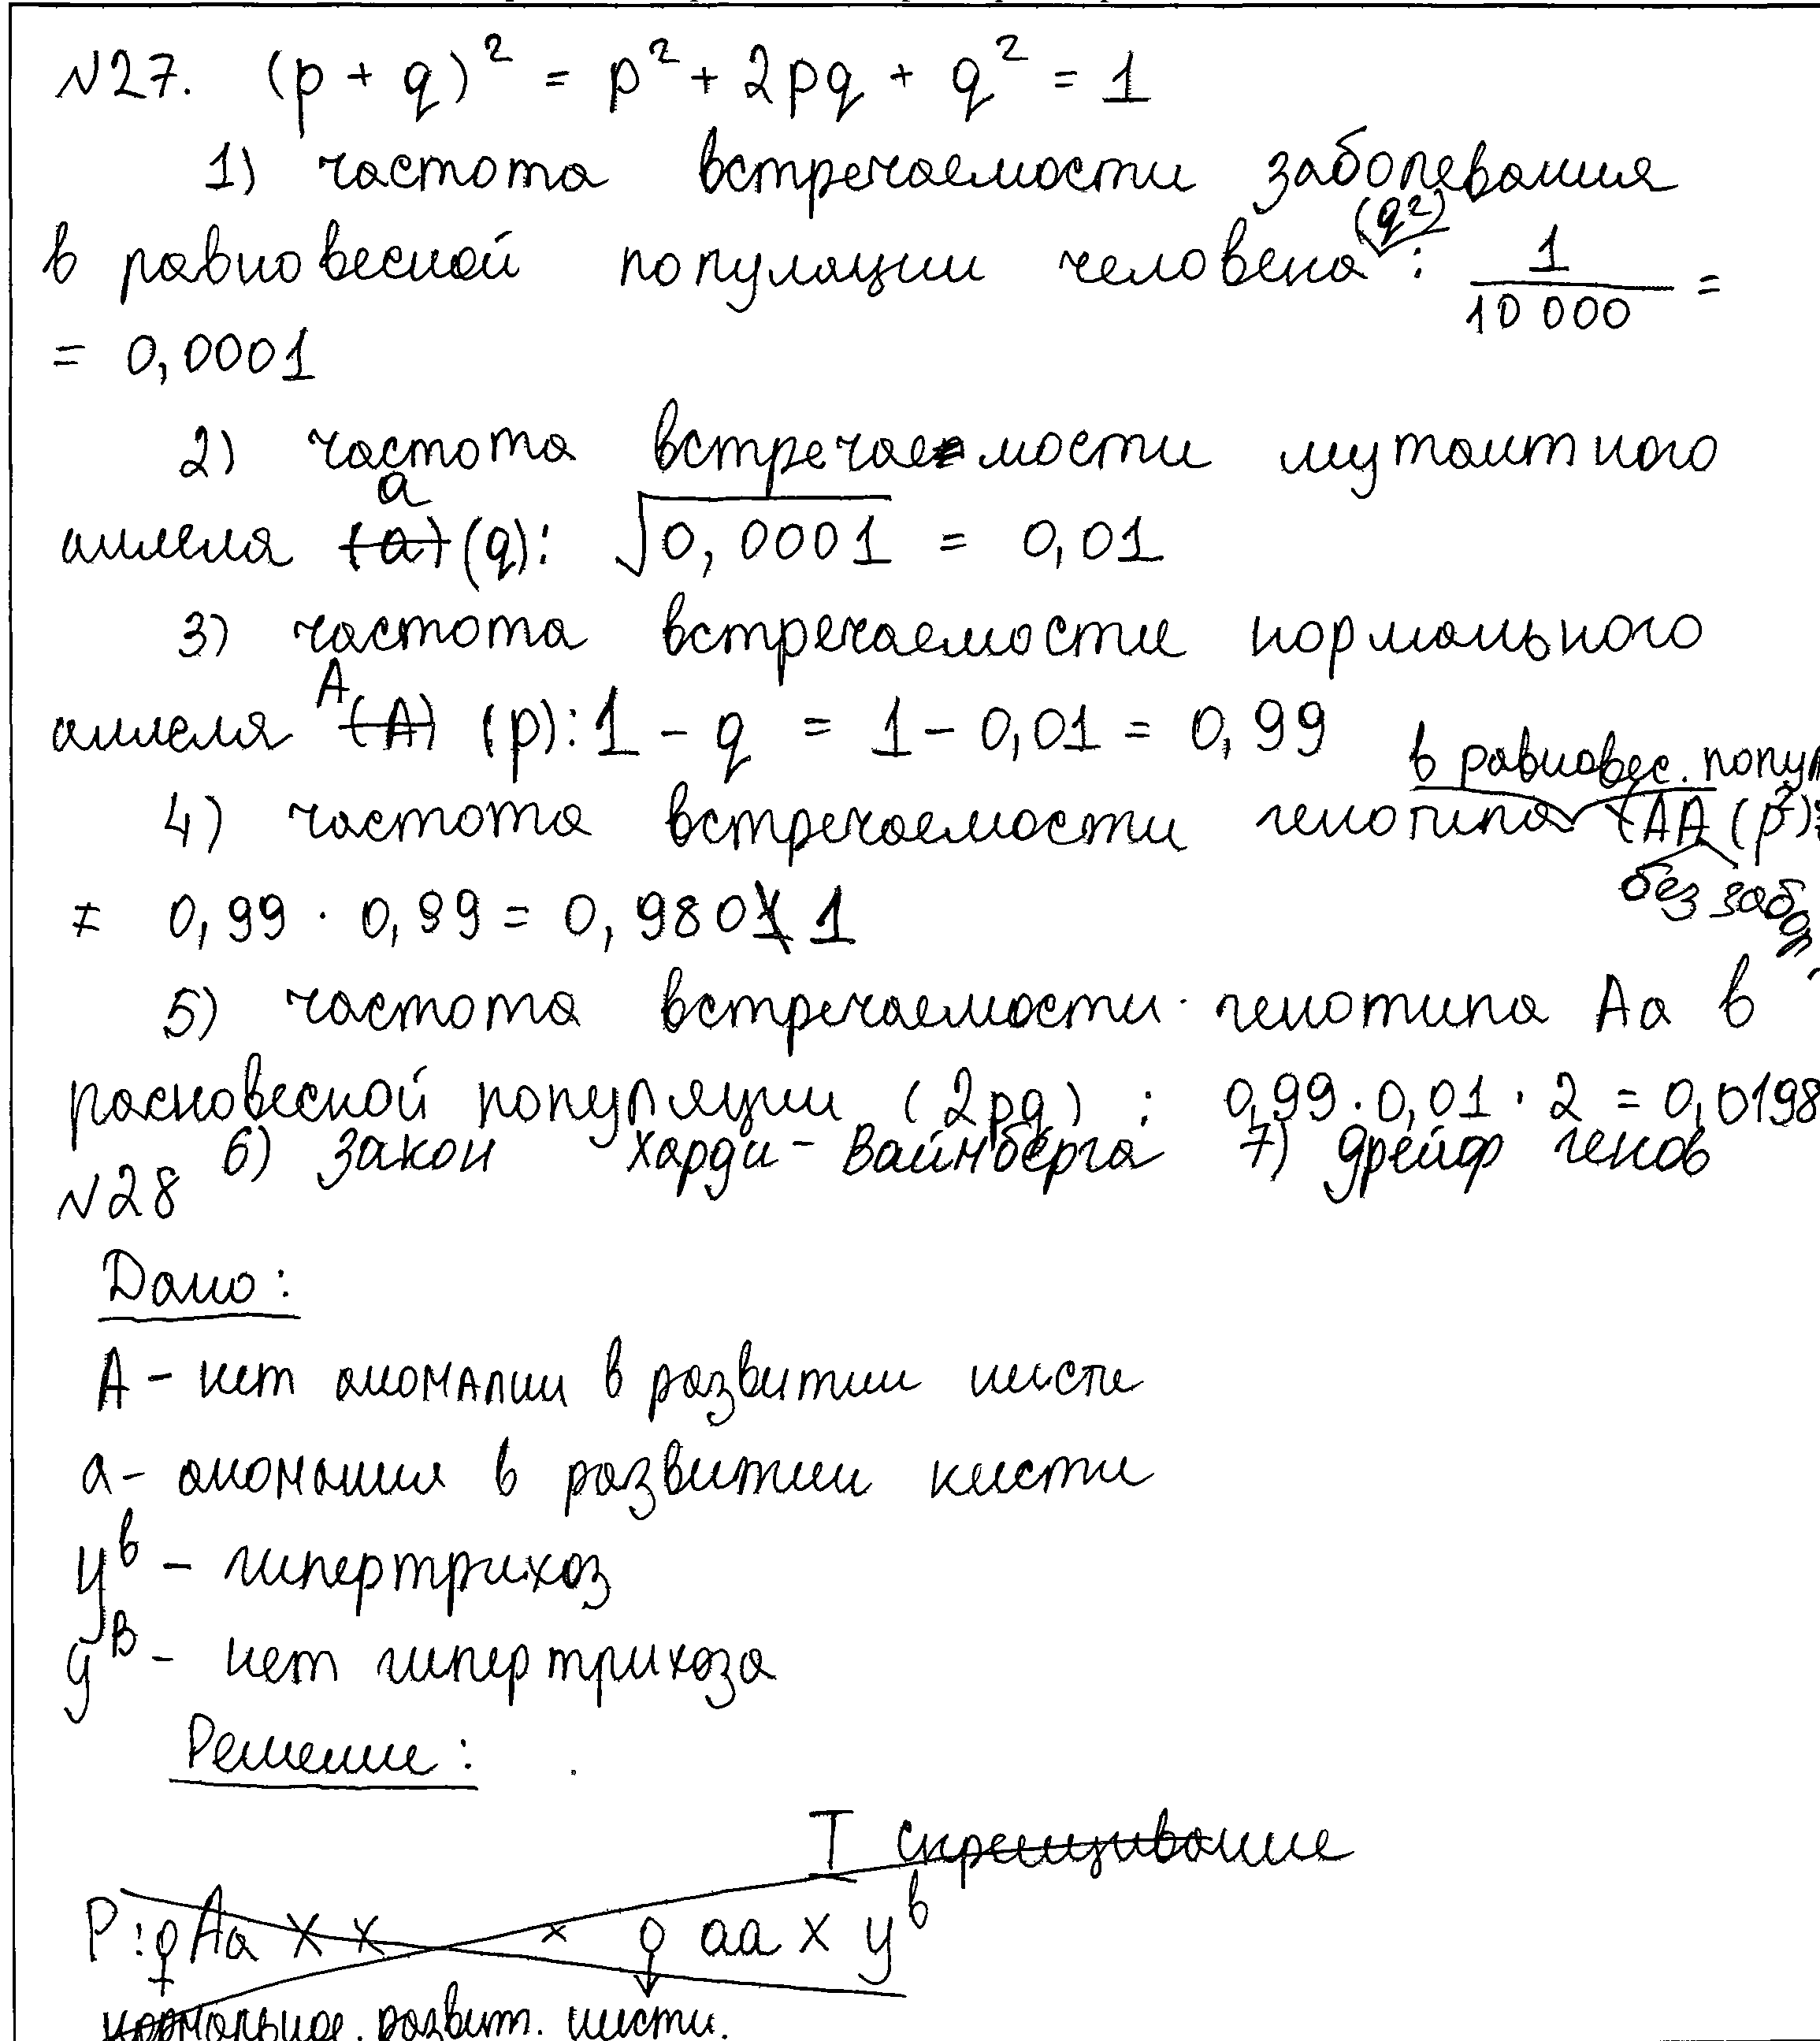 №27. (p + q)² = p² + 2pq + q² = 1
1) частота встречаемости заболевания
в равновесной популяции человека (q²) : 1/10 000 =
= 0,0001
2) частота встречаемости мутантного
аллеля (a) a (q): √0,0001 = 0,01
3) частота встречаемости нормального
аллеля (A) A (p): 1 - q = 1 - 0,01 = 0,99
в равновес. попул
4) частота встречаемости генотипа AA (p²)
без забол
= 0,99 · 0,99 = 0,9801
5) частота встречаемости генотипа Aa в
равновесной популяции (2pq) : 0,99 · 0,01 · 2 = 0,0198
6) Закон Харди - Вайнберга 7) дрейф генов
№28
Дано:
A - нет аномалии в развитии кисти
a - аномалия в развитии кисти
y^b - гипертрихоз
y^B - нет гипертрихоза
Решение:
I скрещивание
P: ♀ Aa X X × ♀ aa X y^b
нормальное. развит. кисти.